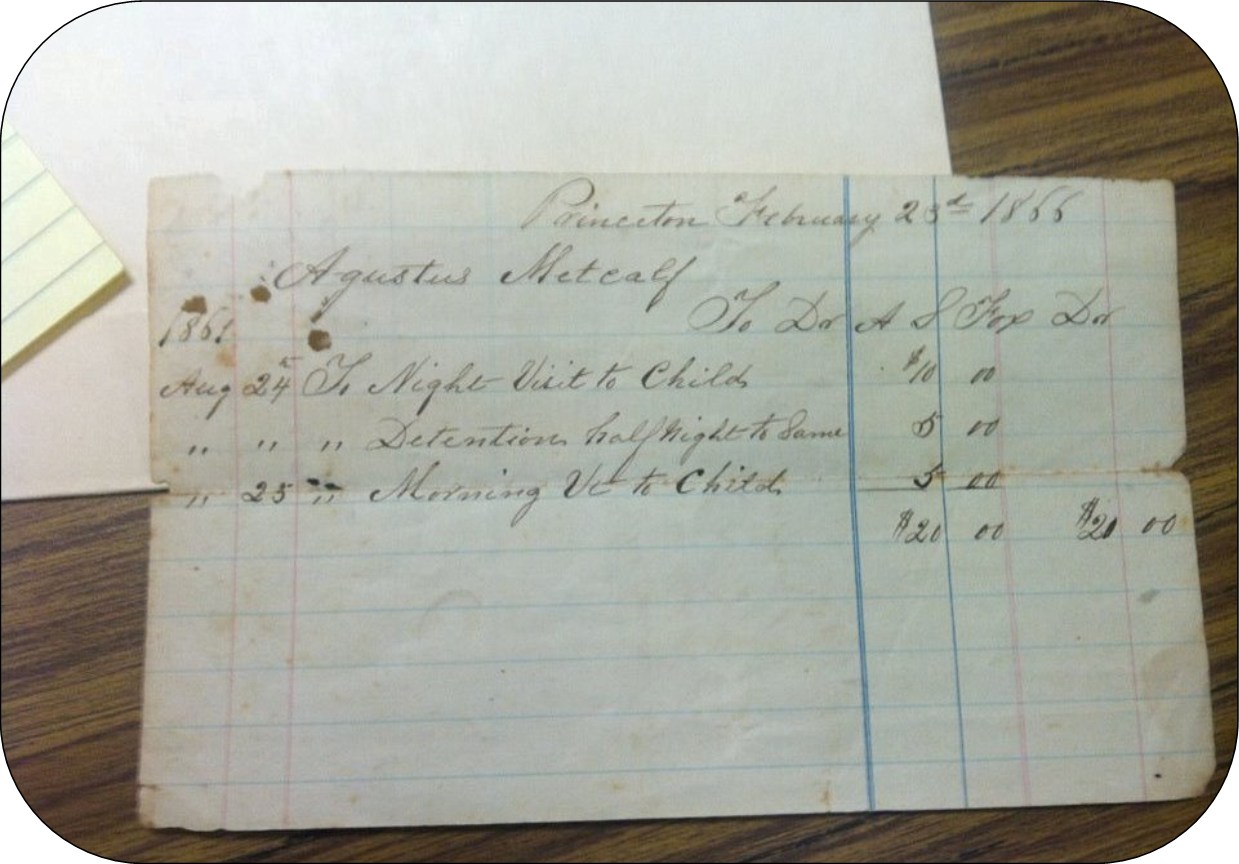 Princeton February 23d 1866
Agustus Metcalf
To Dr A S Fox Dr
1861
Aug 24th To Night Visit to Child $10 00
" " " Detention half Night to Same 5 00
" 25 " Morning Vt to Child 5 00
$20 00 $20 00